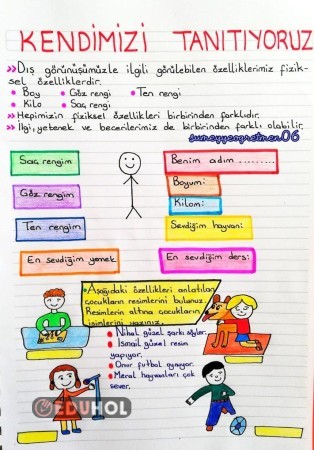 KENDİMİZİ TANITIYORUZ
»Dış görünüşümüzle ilgili görülebilen özelliklerimiz fizik-
sel özelliklerdir.
• Boy • Göz rengi • Ten rengi
• Kilo • Saç rengi
» Hepimizin fiziksel özellikleri birbirinden farklıdır.
» İlgi, yetenek ve becerilerimiz de birbirinden farklı olabilir.
sumeyyeogretmen06
Saç rengim
Benim adım .........
Göz rengim
Boyum:
Kilom:
Ten rengim
Sevdiğim hayvan:
En sevdiğim yemek
En sevdiğim ders:
• Aşağıdaki özellikleri anlatılan
çocukların resimlerini bulunuz.
Resimlerin altına çocukların
isimlerini yazınız.
• Nihal güzel şarkı söyler.
• İsmail güzel resim
yapıyor.
• Onur futbol oynuyor.
• Meral hayvanları çok
sever.
EDUHOL